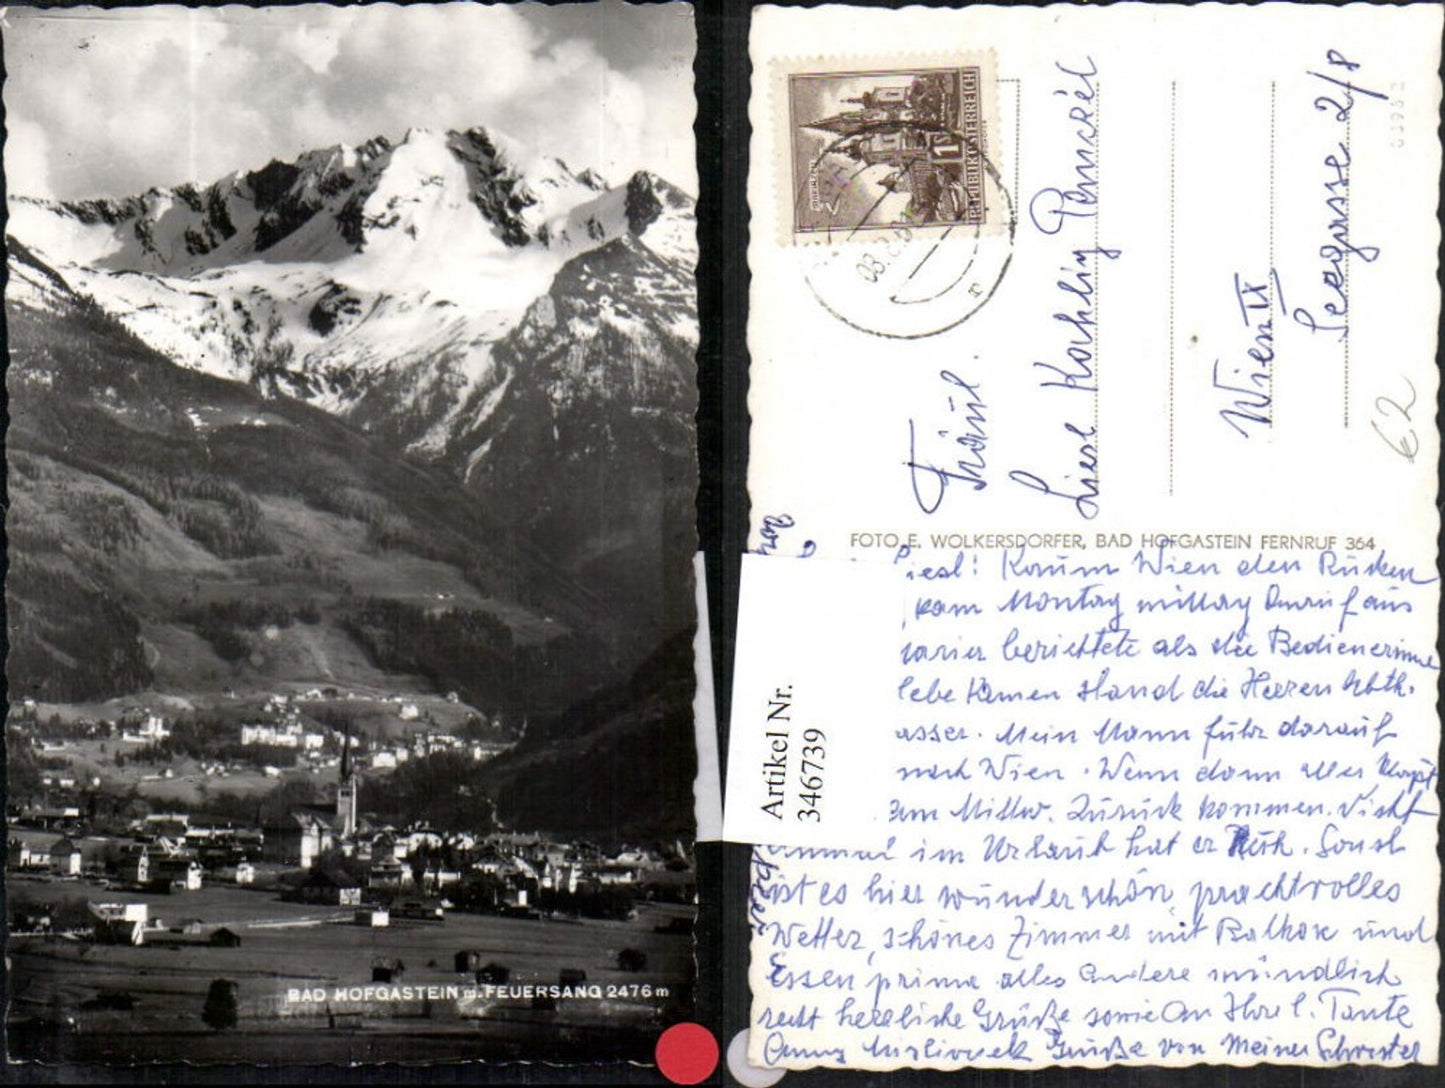 BAD HOFGASTEIN m. FEUERSANG 2476 m
REPUBLIK ÖSTERREICH
1
Fräul.
Liesl
Wien IX
Seegasse 2/8
€2
FOTO E. WOLKERSDORFER, BAD HOFGASTEIN FERNRUF 364
Artikel Nr.
346739
iesl! Kaum Wien den Rücken
kam Montag mittag Anruf aus
berichtete als die Bedienerinne
kamen stand die Herren
asser. Mein Mann fuhr darauf
nach Wien. Wenn dann alles klappt
am Mittw. zurück kommen. Nicht
einmal im Urlaub hat er Ruh. Sonst
ist es hier wunderschön, prachtvolles
Wetter, schönes Zimmer mit Balkon und
Essen prima alles andere mündlich
recht herzliche Grüße sowie an Ihre l. Tante
Grüße von meiner Schwester